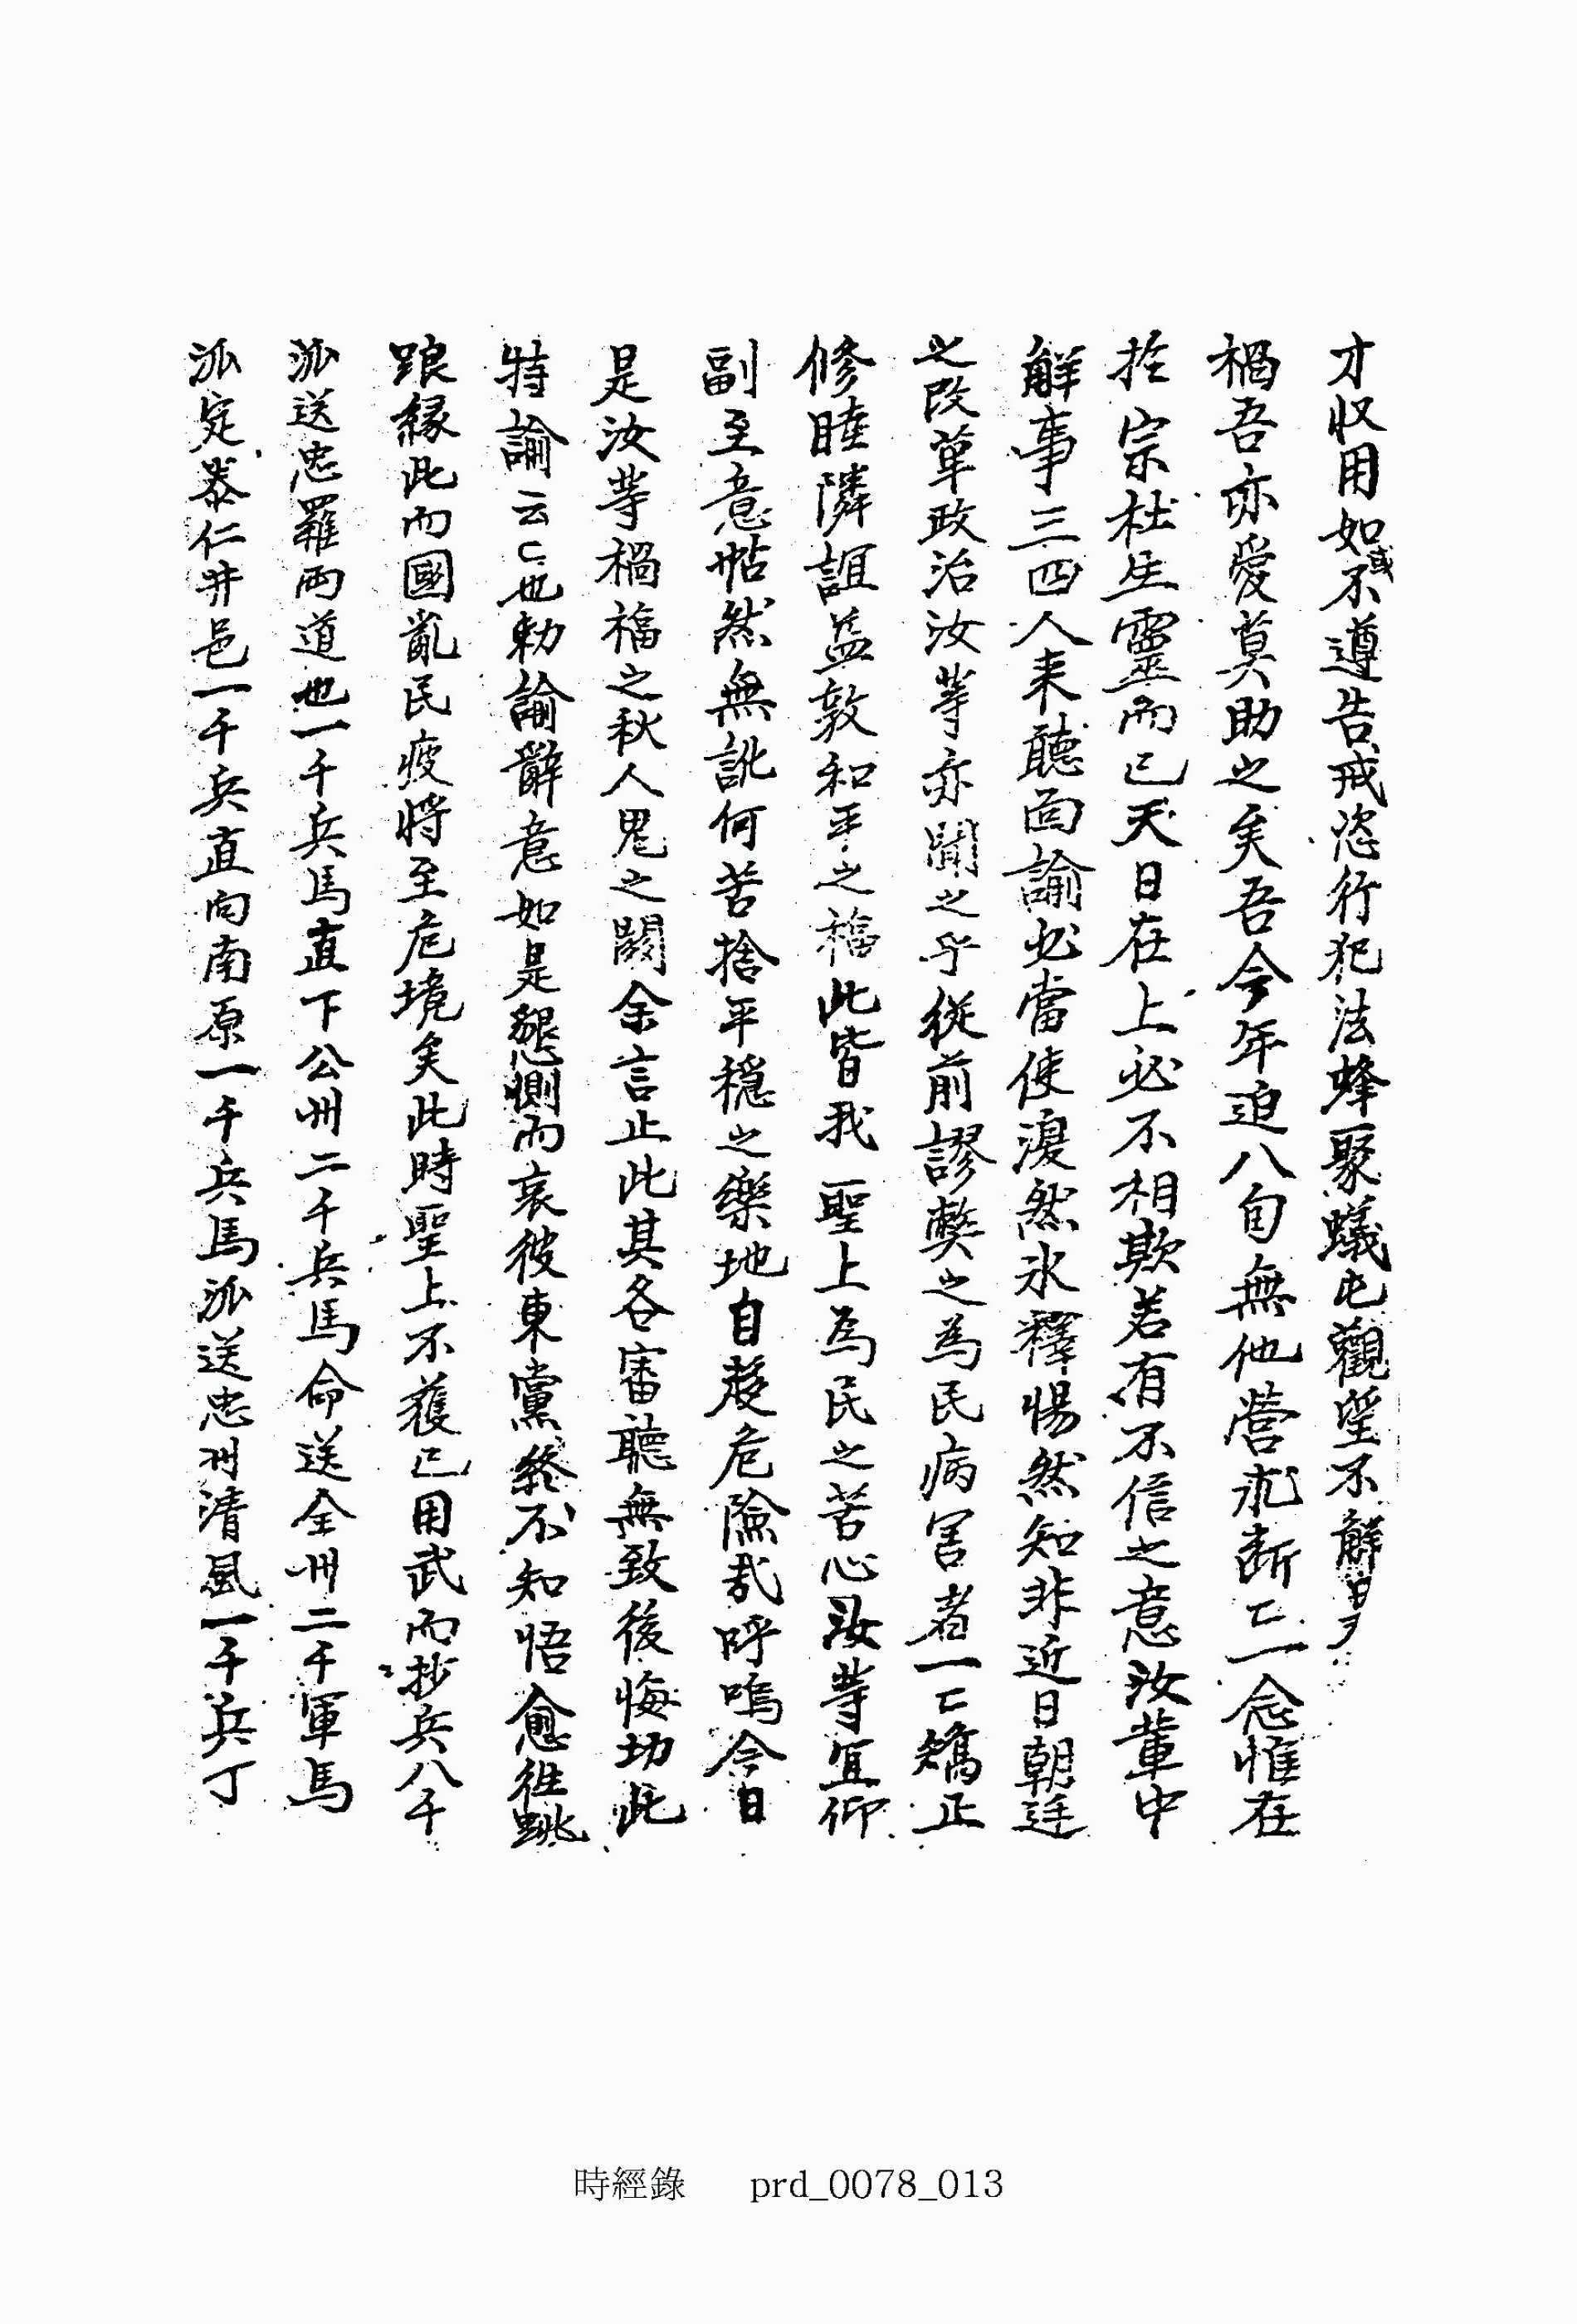 才收用如或不遵告戒恣行犯法蜂聚蟻屯觀望不解
禍吾亦愛莫助之矣吾今年迫八旬無他營求斷匸一念惟在
扵宗社生靈而已天日在上必不相欺若有不信之意汝輩中
解事三四人来聽面諭必當使渙然氷釋惕然知非近日朝廷
之改革政治汝等亦聞之乎從前謬獘之為民病害者一匸矯正
修睦隣誼益敦和平之福此皆我聖上為民之苦心汝等宜仰
副至意帖然無訛何苦捨平穩之樂地自趍危險哉呼嗚今日
是汝等禍福之秋人鬼之關余言止此其各審聽無致後悔切此
特諭云匸也勅諭辭意如是懇惻而哀彼東黨終不知悟愈徃跳
踉緣此而國亂民疲將至危境矣此時聖上不獲已用武而抄兵八千
派送忠羅两道也一千兵馬直下公州二千兵馬命送全州二千軍馬
派定泰仁井邑一千兵直向南原一千兵馬派送忠州清風一千兵丁
時經錄 prd_0078_013